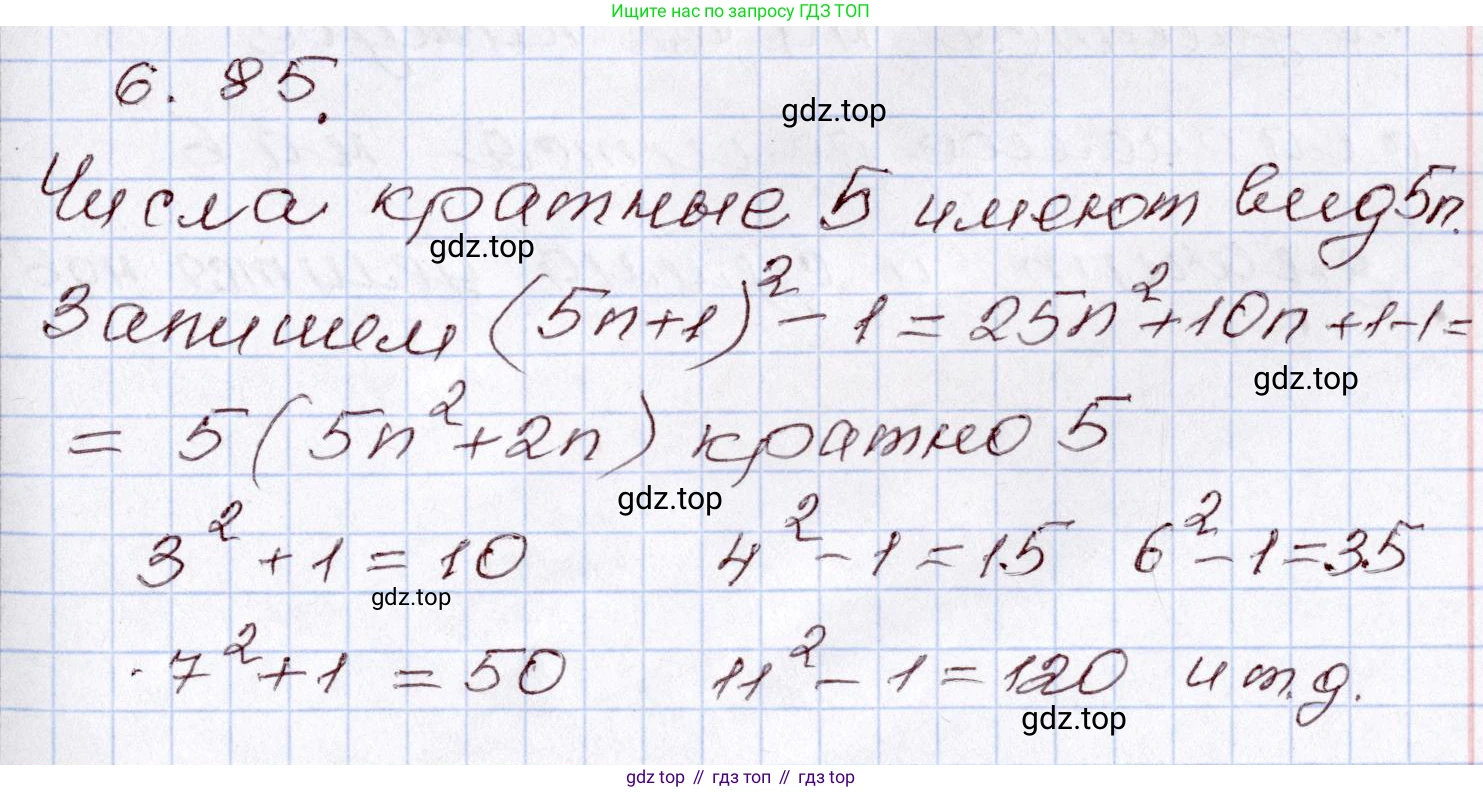 Ищите нас по запросу ГДЗ ТОП
6. 85.
gdz.top
Числа кратные 5 имеют вид 5n.
gdz.top
Запишем (5n+1)² - 1 = 25n² + 10n + 1 - 1 =
gdz.top
= 5(5n² + 2n) кратно 5
gdz.top
3² + 1 = 10 4² - 1 = 15 6² - 1 = 35
gdz.top
7² + 1 = 50 11² - 1 = 120 и т.д.
gdz.top
gdz top // гдз топ // gdz top